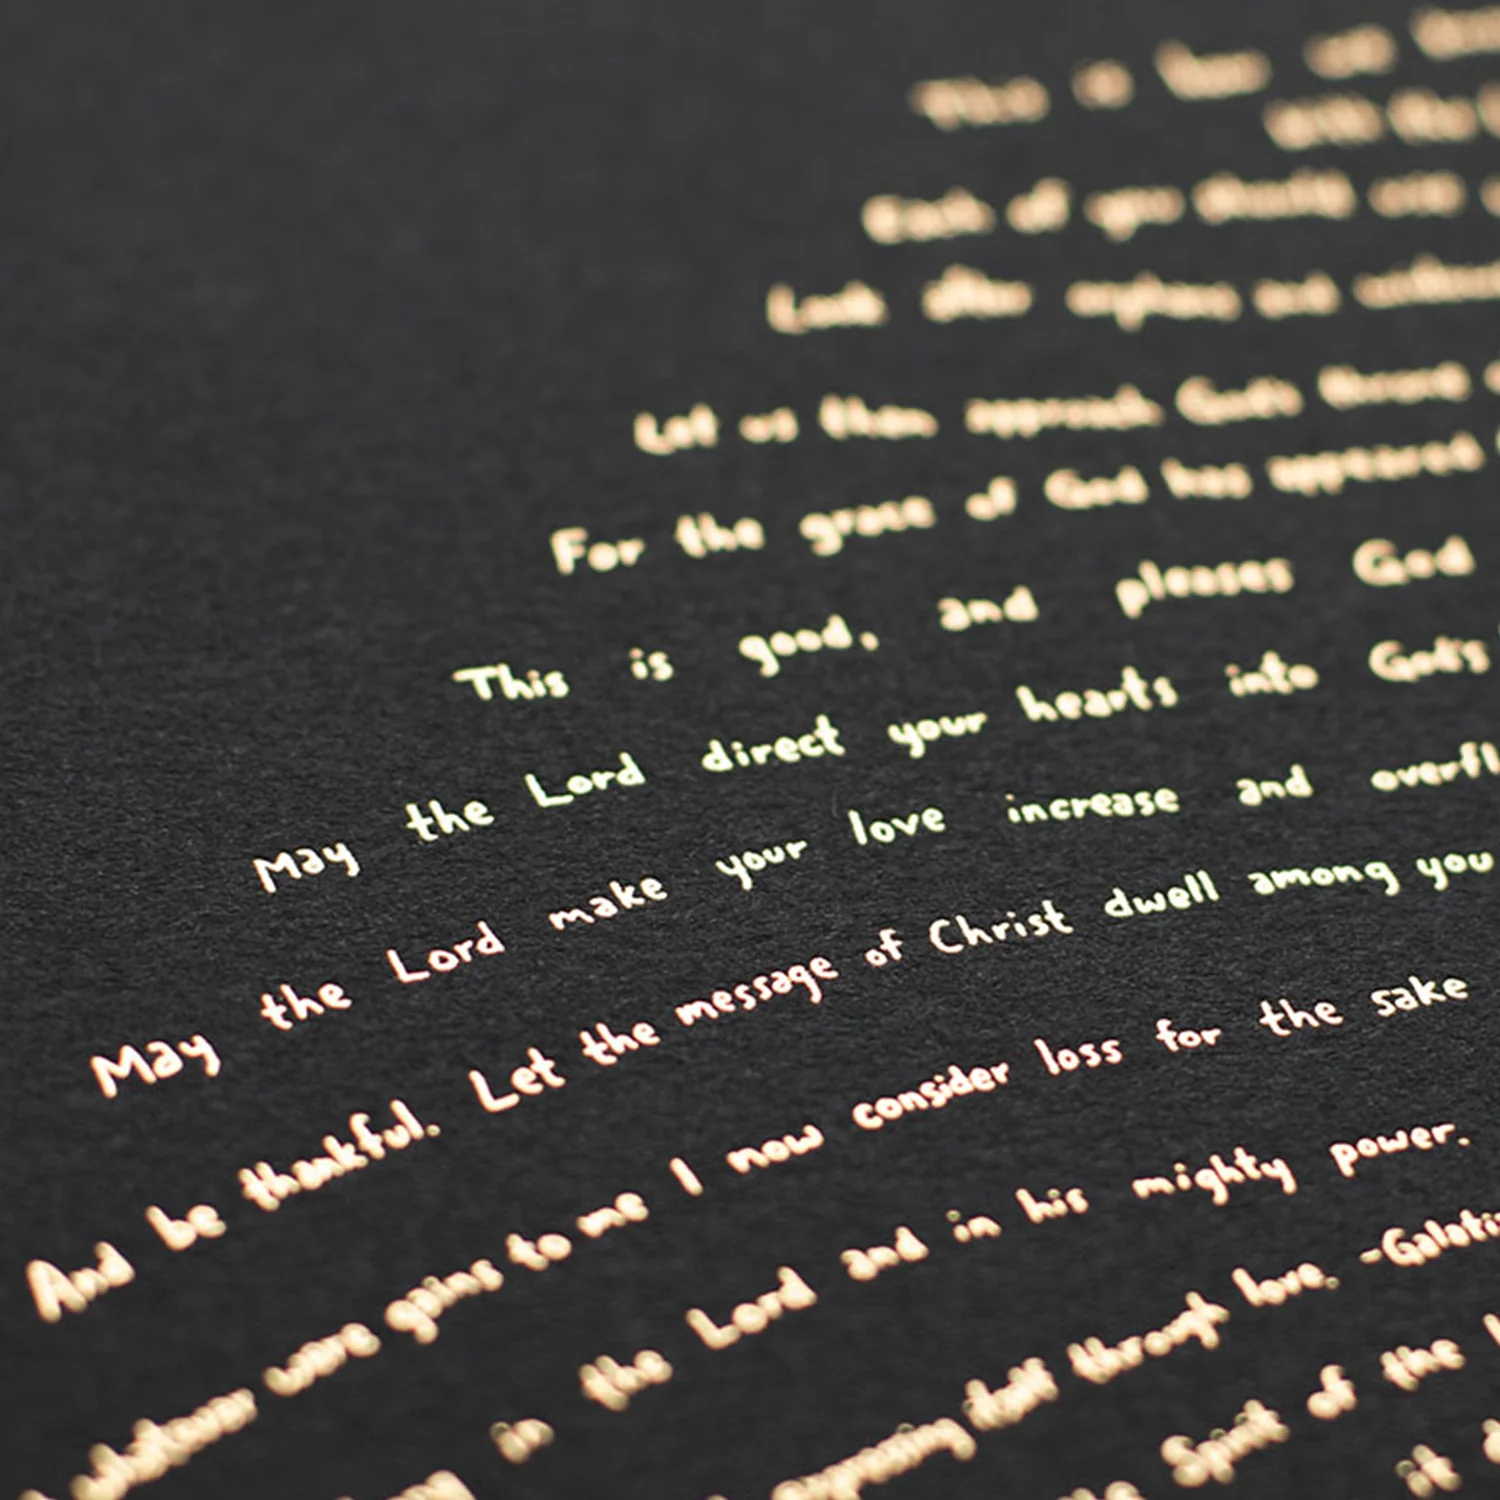 This is how we know
with the
Each of you should use
Look after orphans and widows
Let us then approach God's throne
For the grace of God has appeared
This is good, and pleases God
May the Lord direct your hearts into God's
May the Lord make your love increase and overfl
And be thankful. Let the message of Christ dwell among you
whatever were gains to me I now consider loss for the sake
in the Lord and in his mighty power.
expressing itself through love. -Galati
Spirit of the
it